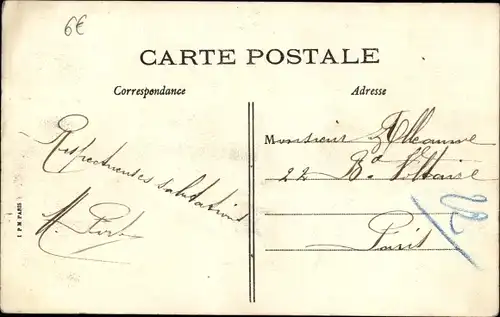 6€
CARTE POSTALE
Correspondance
Adresse
Respectueuses salutations
Monsieur Alleaume
22 Bd Voltaire
Paris
22
I P M PARIS